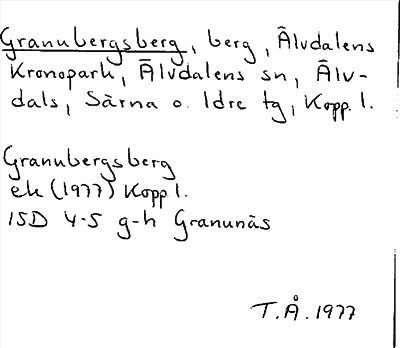 Granubergsberg, berg, Älvdalens
Kronopark, Älvdalens sn, Älv-
dals, Särna o. Idre tg, Kopp. l.
Granubergsberg
ek (1977) Kopp l.
15D 4-5 g-h Granunäs
T.Å. 1977